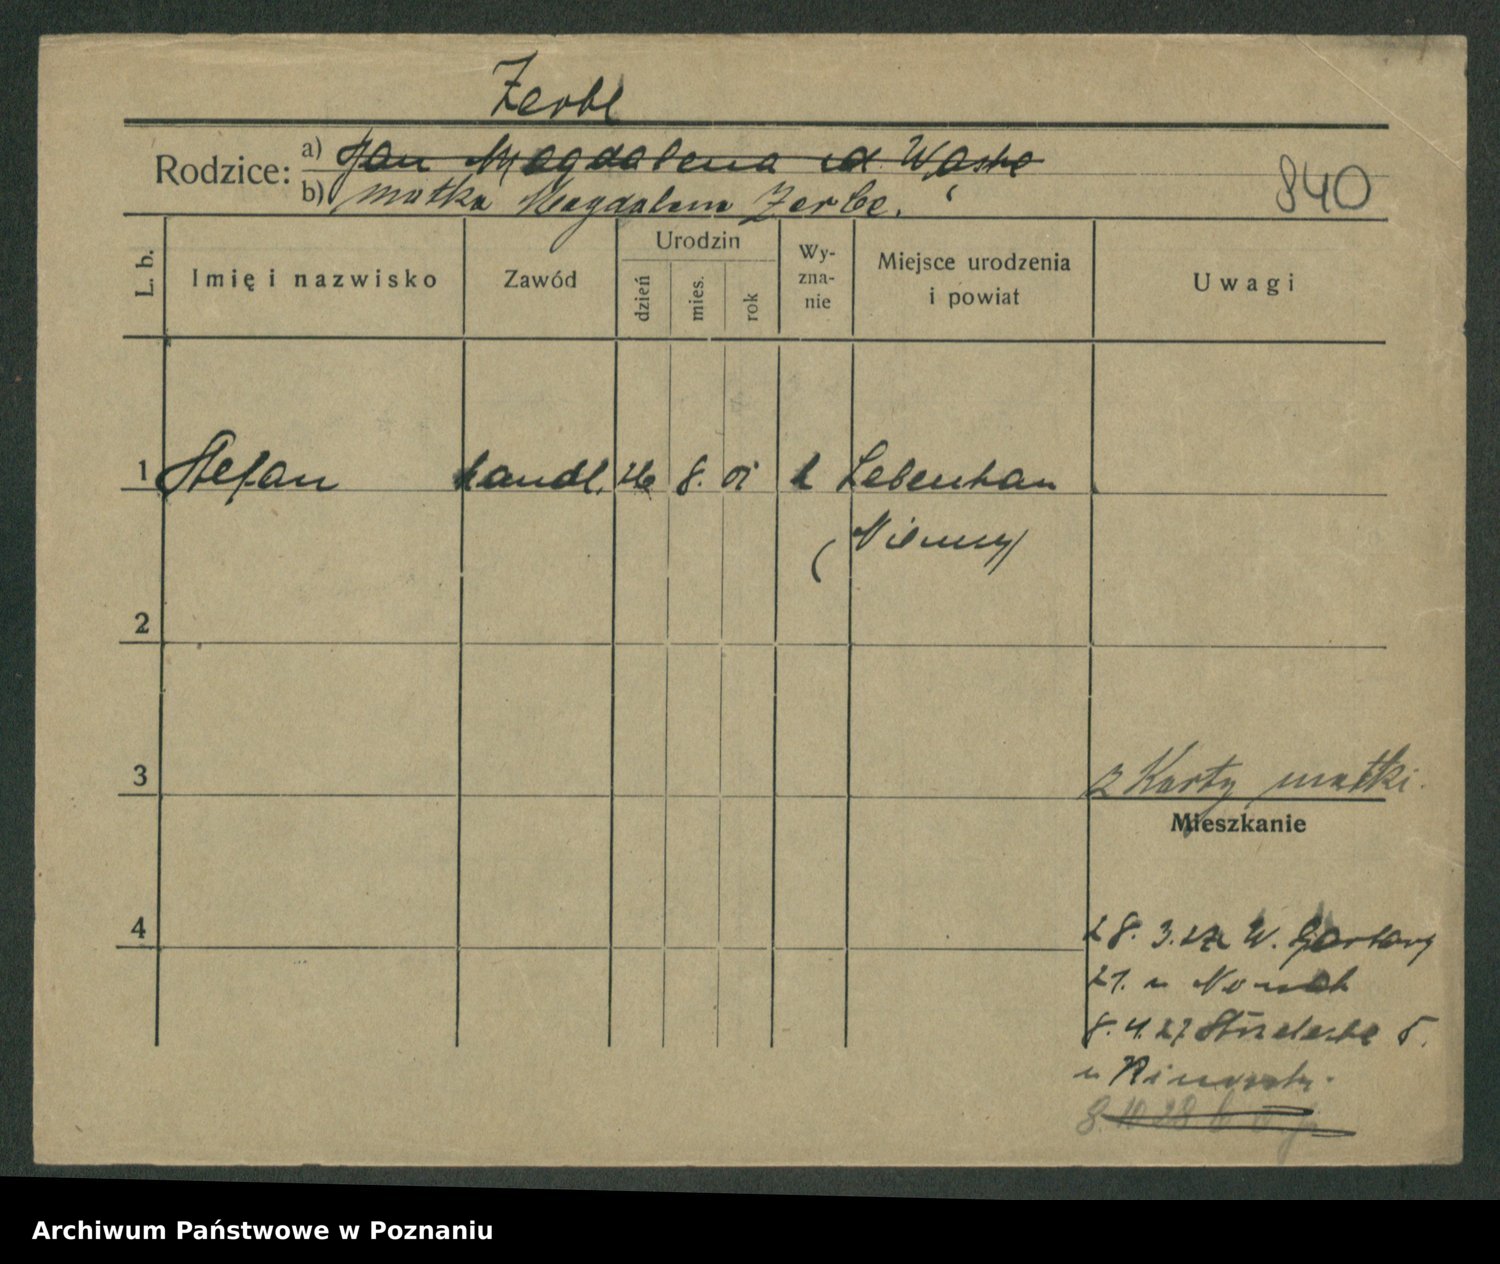 Zerbe
Rodzice: a) Jan Magdalena zd. Wąska
b) matka Magdalena Zerbe.
840
L. b.
Imię i nazwisko
Zawód
Urodzin
dzień
mies.
rok
Wy-
zna-
nie
Miejsce urodzenia
i powiat
Uwagi
1 Stefan handl. 26 8. 01 k Lebenhan
(Niemcy)
2
3
z Karty matki.
Mieszkanie
4
28. 3. W. Garbary
21. u Nowak
8. 4. 27 Strzelecka 5.
u
8. 10 28
Archiwum Państwowe w Poznaniu